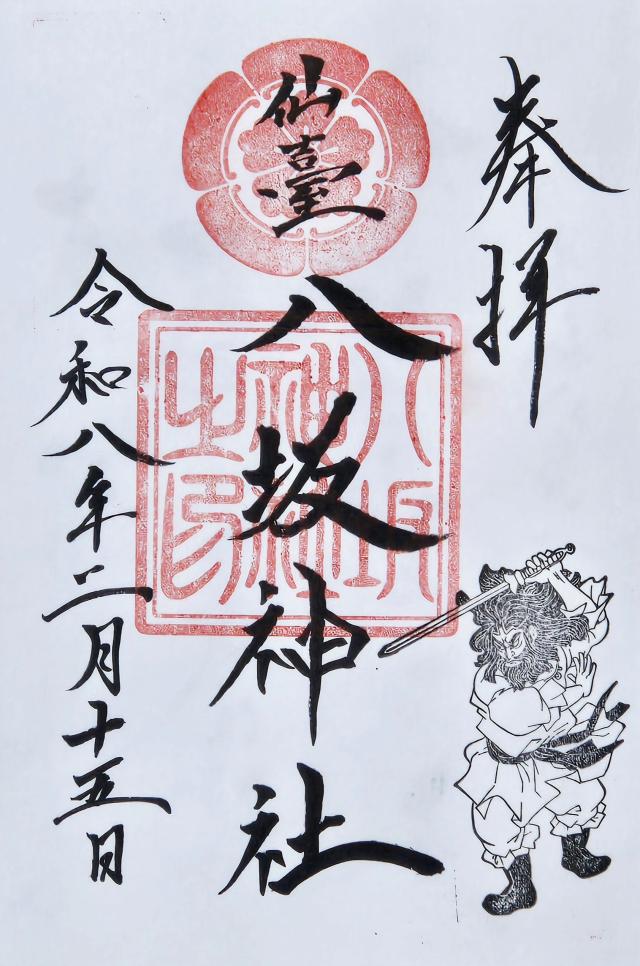 奉拝
仙臺
八坂神社
八坂神社之印
令和八年二月十五日